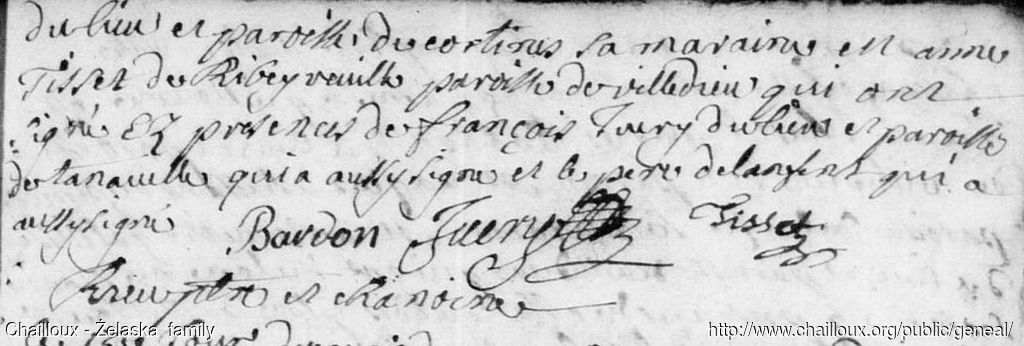 du lieu et paroisse de cortines sa maraine est anne
Tisset de Ribeyrevielle paroisse de villedieu qui ont
signé Ez presences de françois Juery du lieu et paroisse
de tanavelle qui a aussy signé et le pere de lanfent qui a
aussy signé Bardon Juery Tisset
ptre et chanoine
Chailloux - Żelaska family
http://www.chailloux.org/public/geneal/